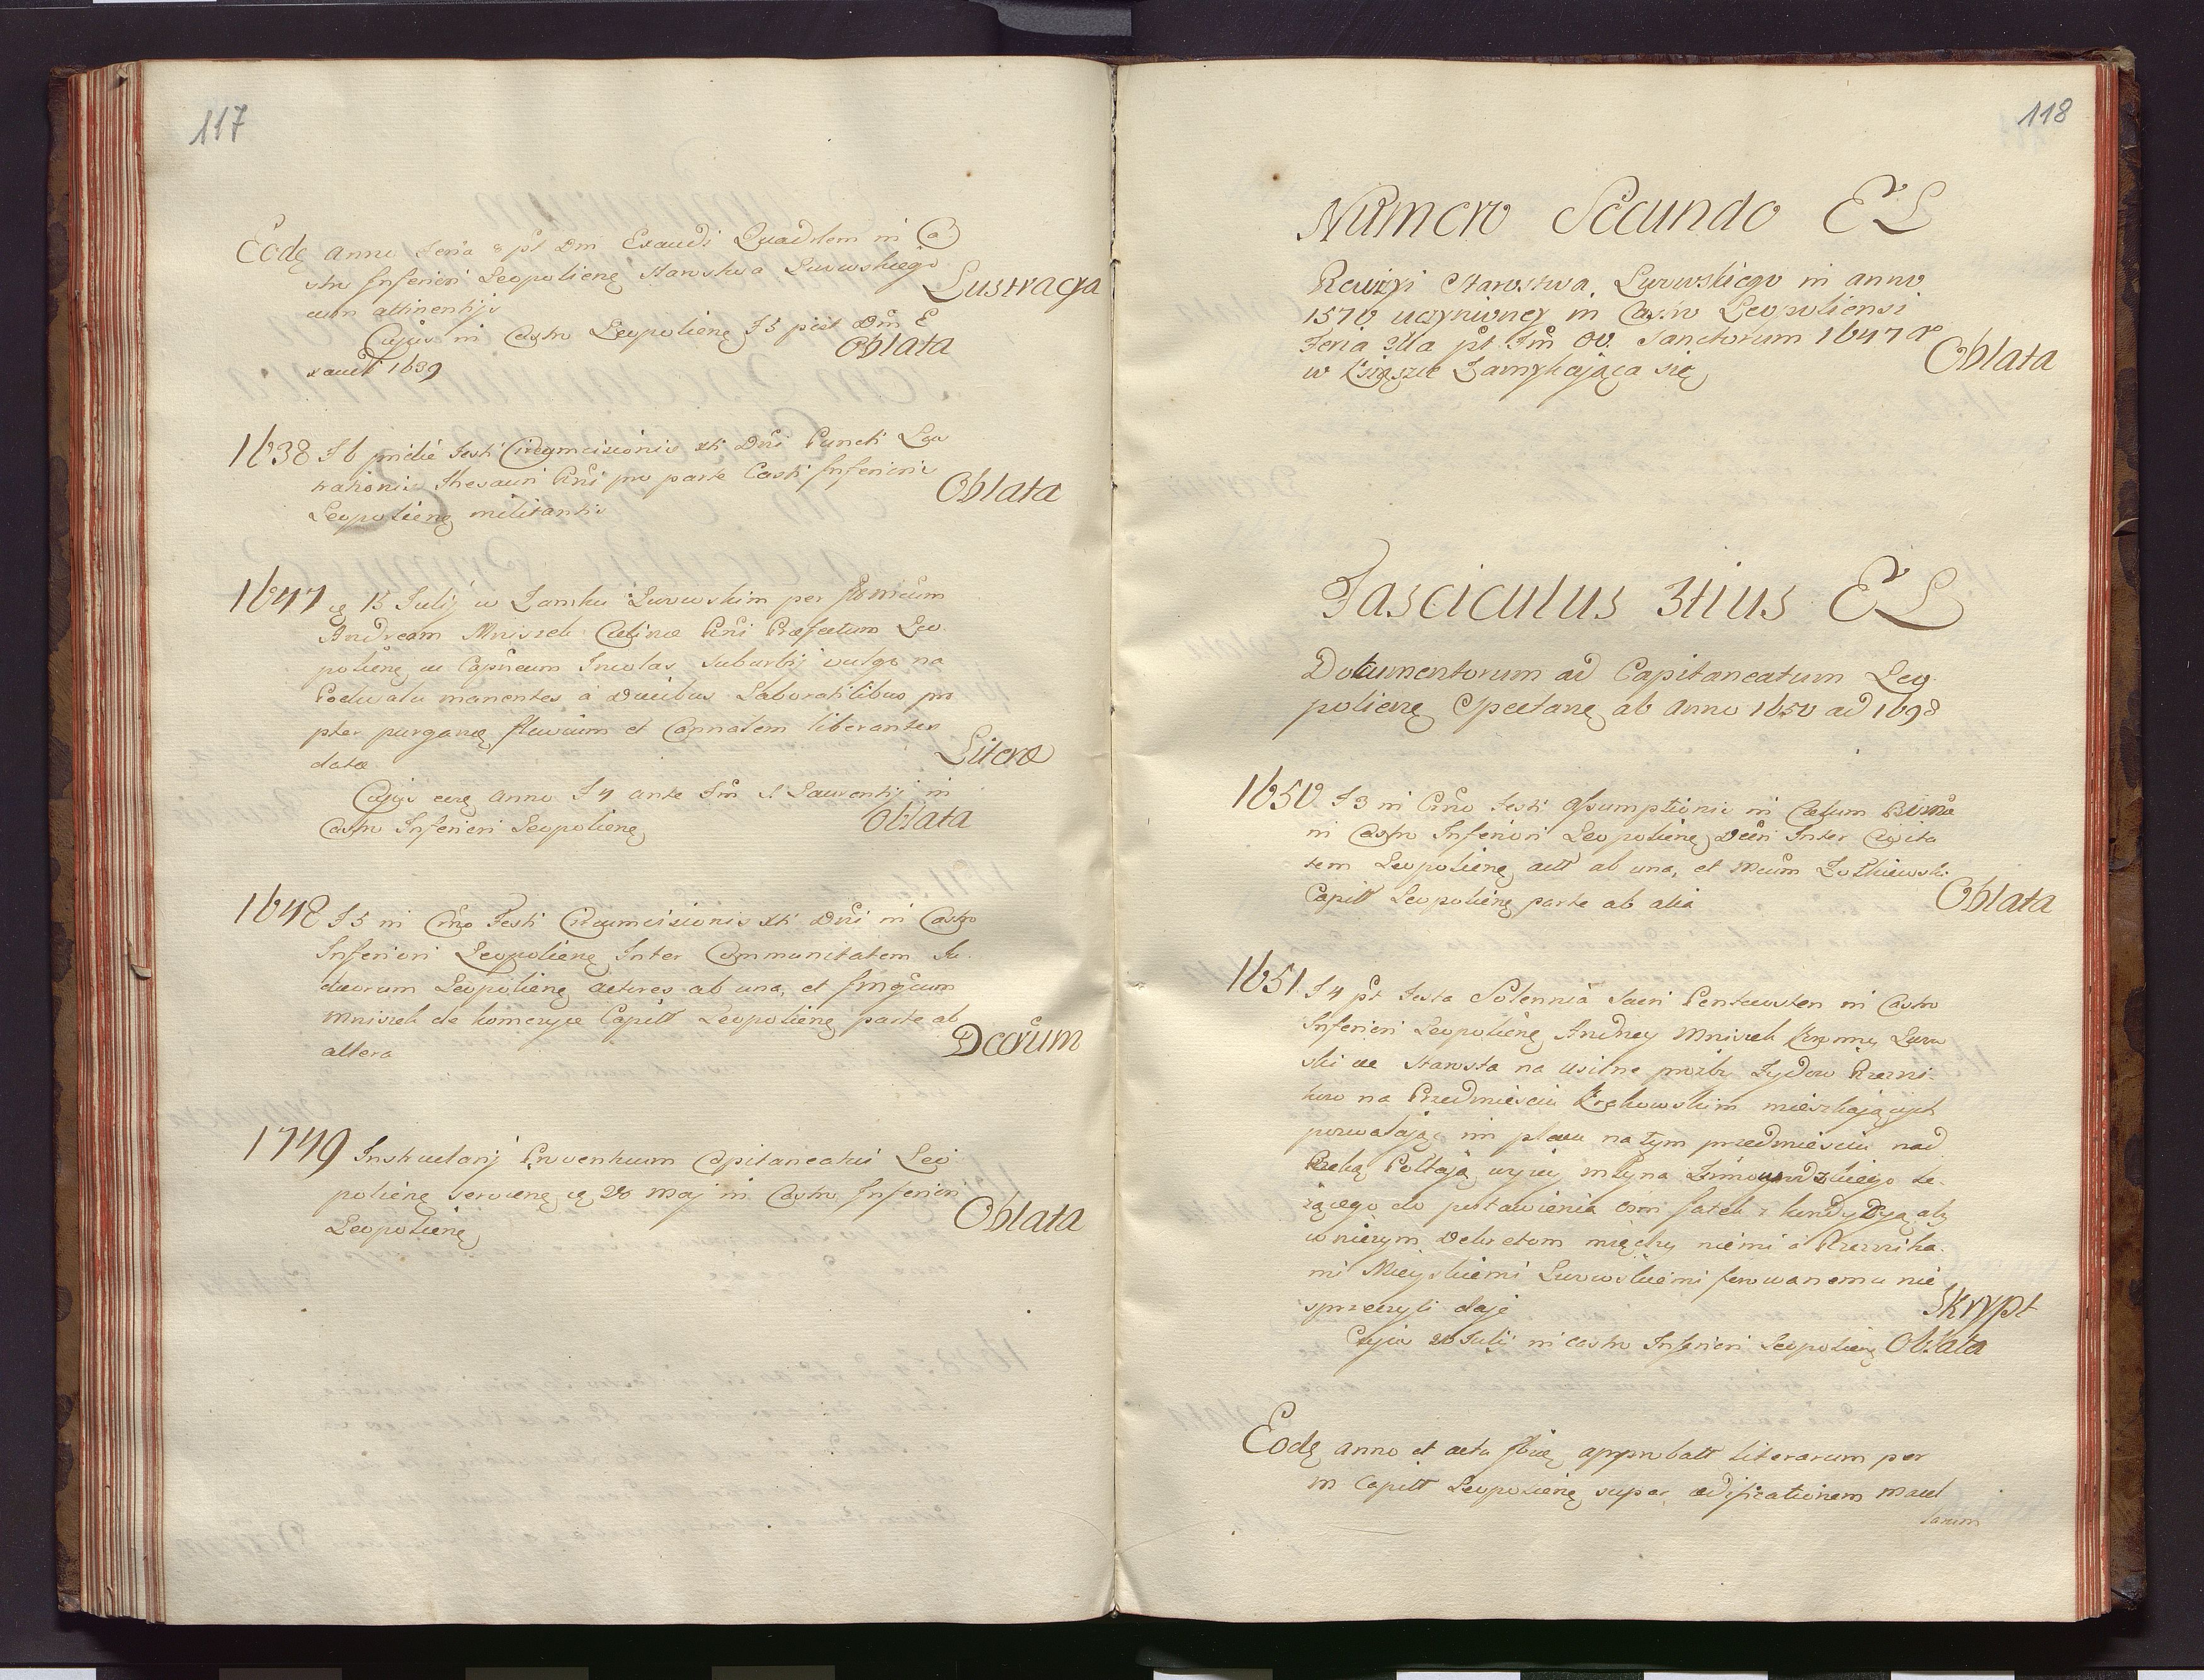 117
Eodę anno Feria 3 pt Dm Exaudi Quadrlem in Ca
stro Inferiori Leopolienę Starostwa Lwowskiego
cum attinentijs Lustracya
Cujus in Castro Leopolienę F5 post Dm E
xaudi 1639 Oblata
1638 F6 pridie Festi Circumcisionis Xti Dni Puncti Lqu
rationis Thesauri Rni pro parte Castri Inferioris
Leopolienę militantis Oblata
1647 ię 15 Julij w Zamku Lwowskim per
Andream Mniszek Culinæ Rni Præfectum Leo
polienę ac Capneum Incolas Suburbij vulgo na
Podwalu manentes à Ducibus Laboratilibus pro
pter purganę fluvium et Cannalem liberantes
datæ Literæ
Cujus eoę anno F4 ante Fm S Laurentij in
Castro Inferiori Leopolienę Oblata
1648 F5 in Crno Festi Circumcisionis Xti Dni in Castro
Inferiori Leopolienę Inter Communitatem Ju
dæorum Leopolienę actores ab una, et
Mniszek de Komczyce Capitt Leopolienę parte ab
altera Dcorum
1749 Instructarij Proventuum Capitaneatus Leo
polienę servienę ię 20 Maj in Castro Inferiori
Leopolienę Oblata
118
Numero Secundo EL
Rewizyi Starostwa Lwowskiego in anno
1570 uczynioney in Castro Leopoliensi
Feria 2da pt Fm OO. Sanctorum 1647 a
w Książce Zamykająca się Oblata
Fasciculus 3tius EL
Documentorum ad Capitaneatum Leo
polienę Spectanę ab Anno 1650 ad 1698
1650 F3 in Crno Festi Assumptionis in Cælum
in Castro Inferiori Leopolienę Dcii Inter Civita
tem Leopolienę actt ab una, et Mcum Zołkiewski
Capitt Leopolienę parte ab alia Oblata
1651 F4 pt Festa Solennia Sacri Pentecosten in Castro
Inferiori Leopolienę Andrzey Mniszek Lwow
ski ae Starosta na usilne prozbe Zydow Rzezni
kow na Przedmieściu Krakowskim mieszkających
pozwalając im placu na tym przedmieściu nad
Rzeką Połtwią wyżey młyna le
żącego do postawienia osm Jatek z kondycyą aby
w niczym Dekretom między niemi a Rzeznika
mi Mieyskiemi Lwowskiemi ferowanemu nie
sprzeczyli daje Skrypt
Cujus 20 Julij in Castro Inferiori Leopolienę Oblata
Eodę anno et actu approbatt literarum per
M Capitt Leopolienę super ædificationem Macel
larum